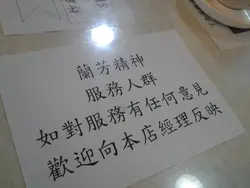 蘭芳精神
服務人群
如對服務有任何意見
歡迎向本店經理反映